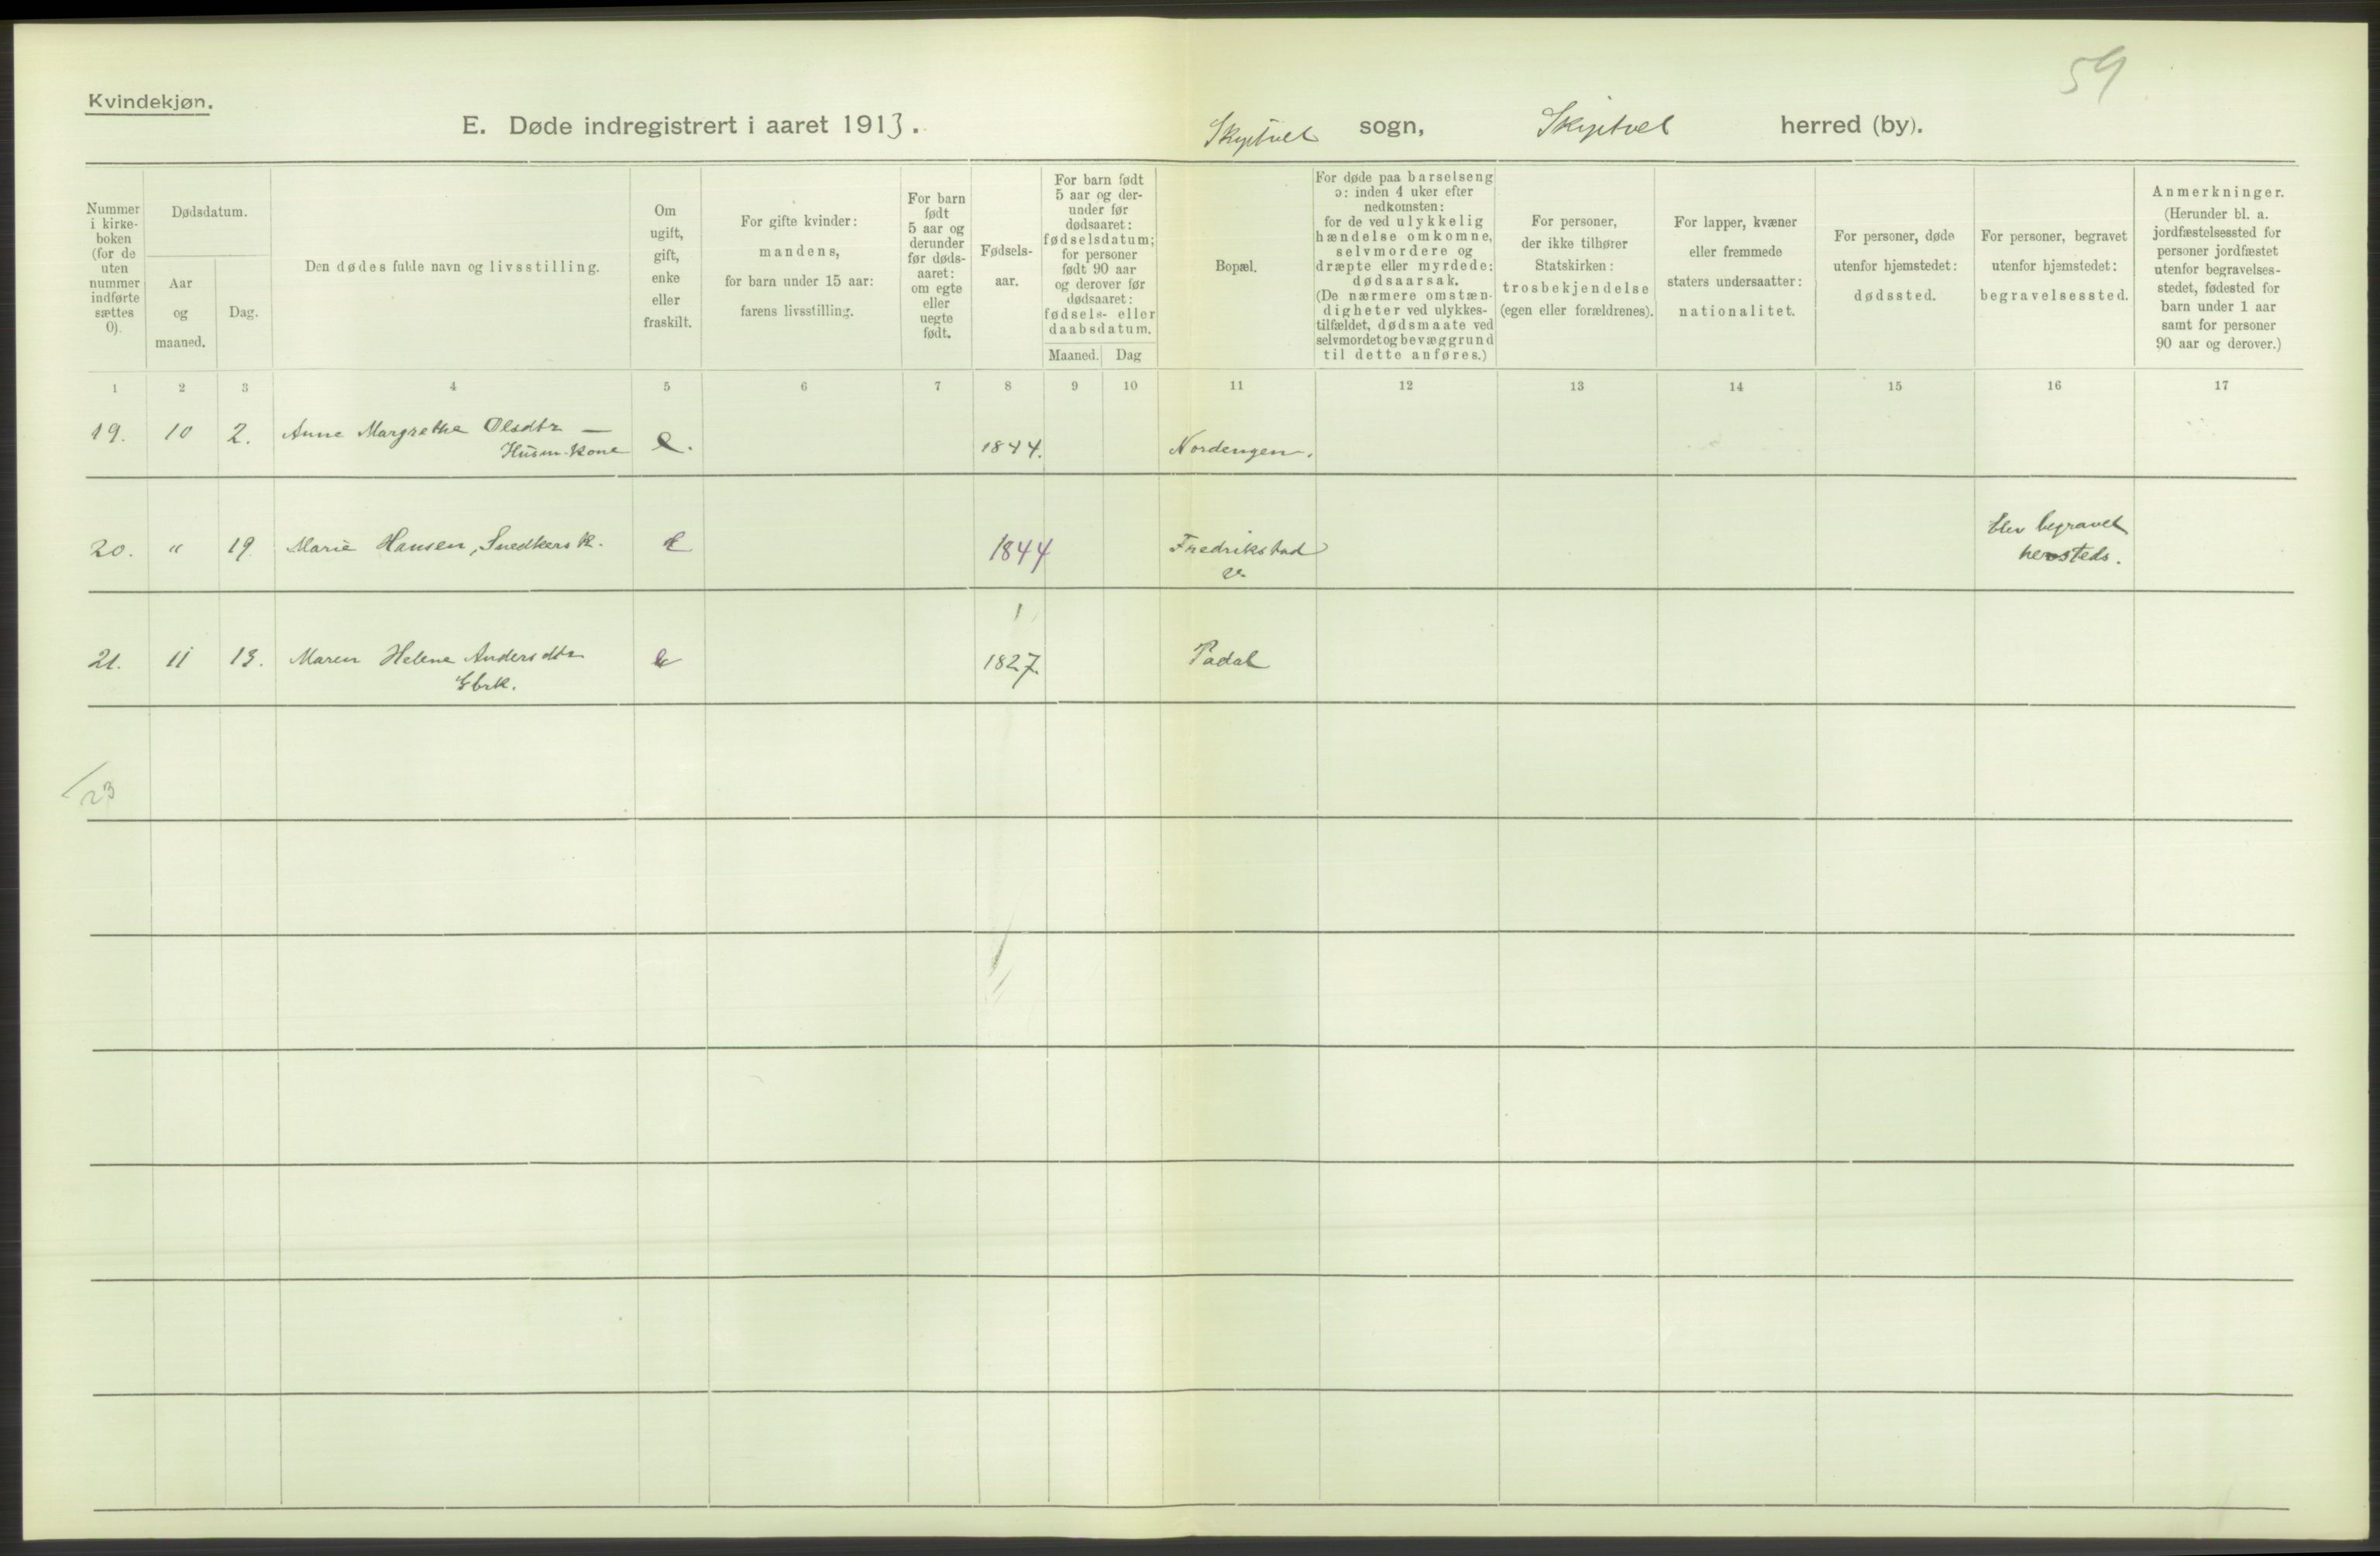 59
Kvindekjøn.
E. Døde indregistrert i aaret 1913. Skjptvet sogn, Skjptvet herred (by).
Nummer i kirke- boken (for de uten nummer indførte sættes 0).
Dødsdatum.
Aar og maaned.
Dag.
Den dødes fulde navn og livsstilling.
Om ugift, gift, enke eller fraskilt.
For gifte kvinder: mandens, for barn under 15 aar: farens livsstilling.
For barn født 5 aar og derunder før døds- aaret: om egte eller uegte født.
Fødsels- aar.
For barn født 5 aar og der- under før dødsaaret: fødselsdatum; for personer født 90 aar og derover før dødsaaret: fødsels- eller daabsdatum.
Maaned. Dag
Bopæl.
For døde paa barselseng ɔ: inden 4 uker efter nedkomsten: for de ved ulykkelig hændelse omkomne, selvmordere og dræpte eller myrdede: dødsaarsak. (De nærmere omstæn- digheter ved ulykkes- tilfældet, dødsmaate ved selvmordet og bevæggrund til dette anføres.)
For personer, der ikke tilhører Statskirken: trosbekjendelse (egen eller forældrenes).
For lapper, kvæner eller fremmede staters undersaatter: nationalitet.
For personer, døde utenfor hjemstedet: dødssted.
For personer, begravet utenfor hjemstedet: begravelsessted.
Anmerkninger. (Herunder bl. a. jordfæstelsessted for personer jordfæstet utenfor begravelses- stedet, fødested for barn under 1 aar samt for personer 90 aar og derover.)
1 2 3 4 5 6 7 8 9 10 11 12 13 14 15 16 17
19. 10 2. Anne Margrethe Olsdtr —
Husm. kone e. 1844. Nordengen.
blev begravet
20. " 19 Marie Hansen, Snedkers k. e 1844 Fredrikstad hersteds.
21. 11 13. Maren Helene Andersdtr e 1827. Padal
Gbrk.
/23